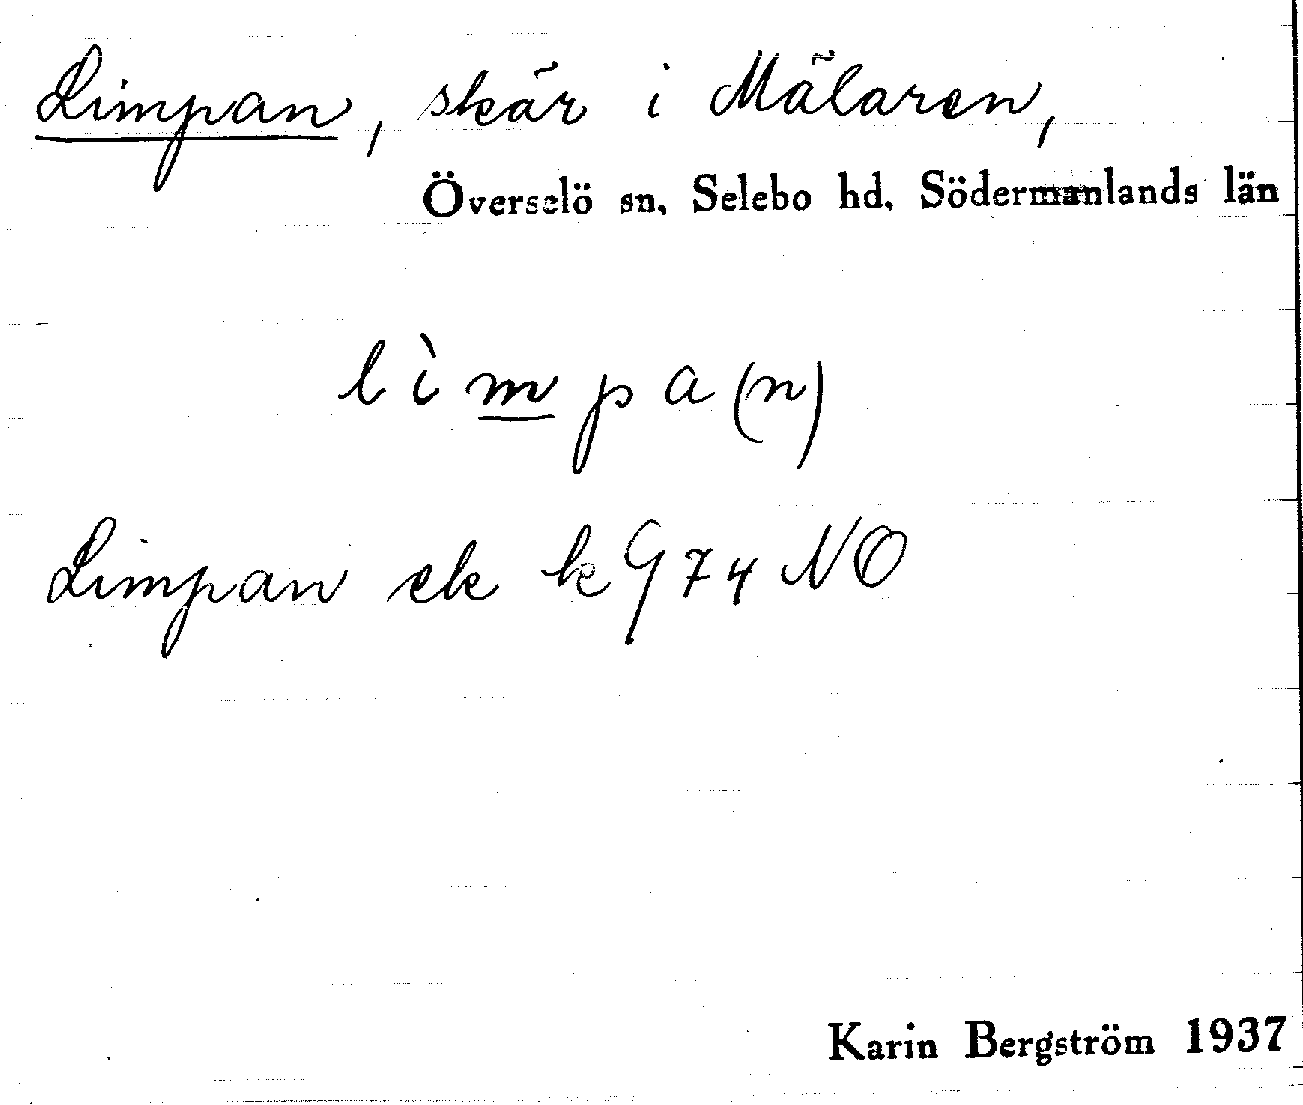 Limpan, skär i Mälaren,
Överselö sn, Selebo hd, Södermanlands län
lìmpa(n)
Limpan ek k G 74 NO
Karin Bergström 1937